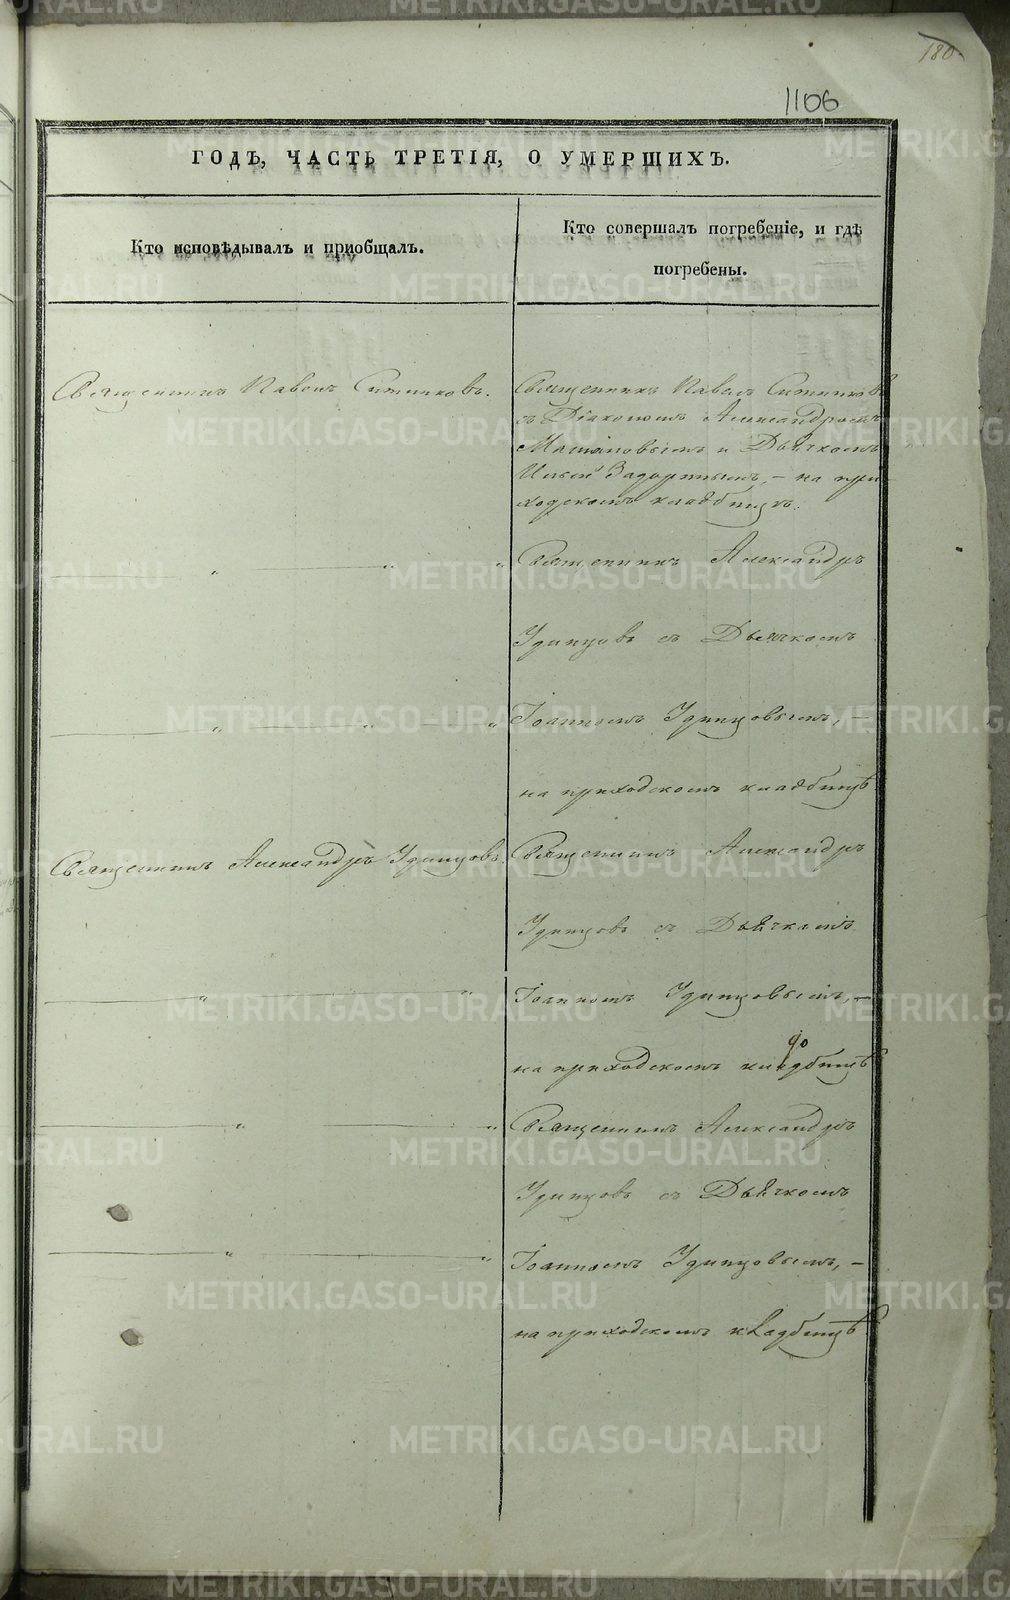 180.
1106
ГОДЪ, ЧАСТЬ ТРЕТІЯ, О УМЕРШИХЪ.
Кто исповѣдывалъ и приобщалъ.
Кто совершалъ погребеніе, и гдѣ
погребены.
Священникъ Павелъ Ситниковъ.
Священникъ Павелъ Ситниковъ
съ Діакономъ Александромъ
и Дьячкомъ
Ильей Задорнымъ, – на при-
ходскомъ кладбищѣ.
Священникъ Александръ
Удинцовъ съ Дьячкомъ
Іоанномъ Удинцовымъ, –
на приходскомъ кладбищѣ
Священникъ Александръ Удинцовъ.
Священникъ Александръ
Удинцовъ съ Дьячкомъ
Іоанномъ Удинцовымъ, –
на приходскомъ кладбищѣ
Священникъ Александръ
Удинцовъ съ Дьячкомъ
Іоанномъ Удинцовымъ, –
на приходскомъ кладбищѣ
METRIKI.GASO-URAL.RU